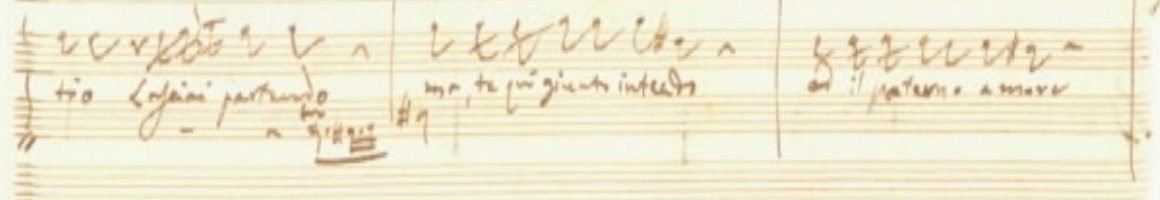 tio lasciai partendo ma, te qui giunto intendo ed il paterno amore